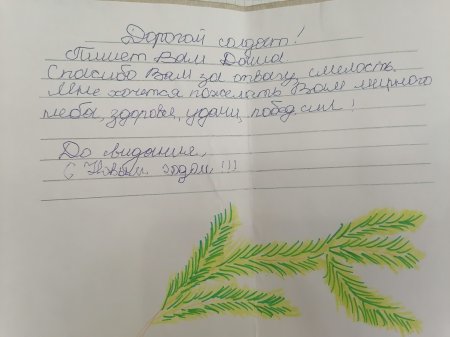 Дорогой солдат!
Пишет Вам Даша
Спасибо Вам за отвагу, смелость.
Мне хочется пожелать Вам мирного
неба, здоровья, удачи, побед, сил!
До видания,
С Новым годом!!!